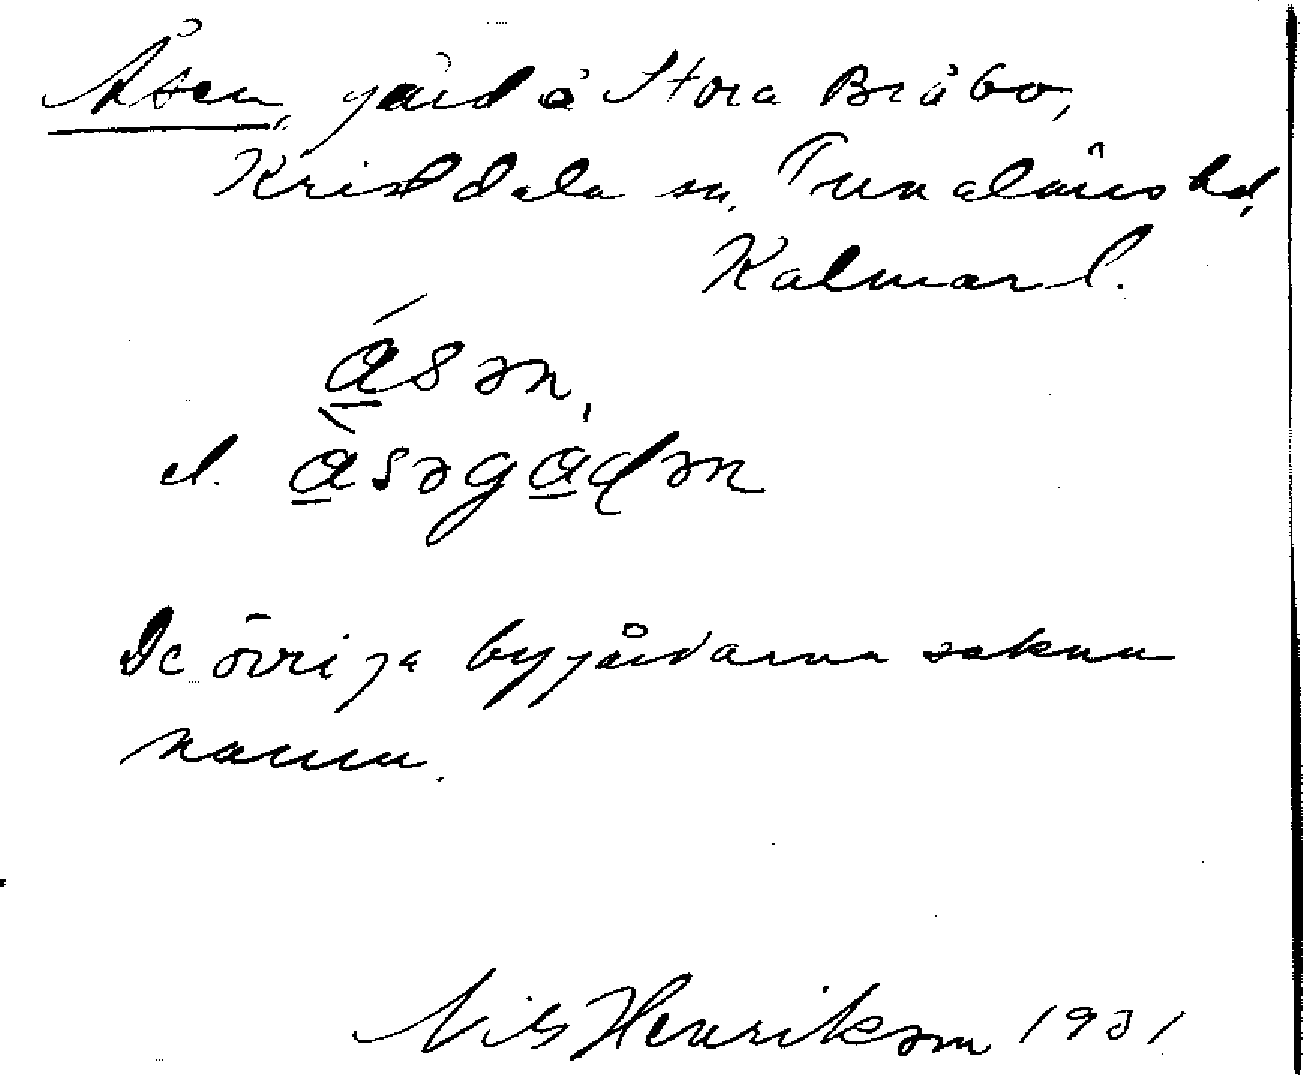 Åsen, gård å Stora Bråbo,
Kristdala sn, Tunaläns hd,
Kalmar l.
ásən,
el. àsəgadən
De övriga bygårdarna sakna
namn.
Nils Henrikson 1931